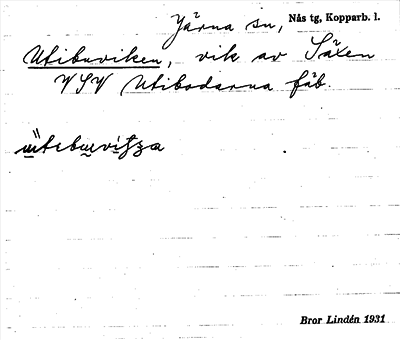 Järna sn, Nås tg, Kopparb. l.
Utibuviken, vik av Säxen
VSV Utibodarna fäb.
Bror Lindén 1931